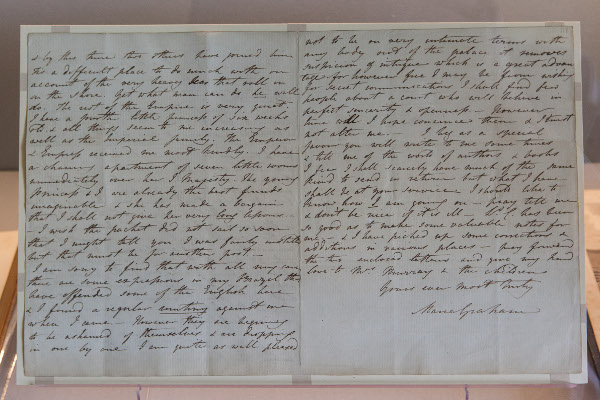 & by this time two others have joined him
Its a difficult place to do much with on
account of the very heavy sea that roll on
on the shore. Yet what man can do he will
do. The rest of the Empire is very quiet.
I have a fourth little princess of six weeks
old & all things seem to me increasing as
well as the Imperial family the Emperor
& Empress received me most kindly. I have
a charming apartment of seven little rooms
immediately over her I. Majesty. The young
Princess & I are already the best friends
imaginable & she has made a bargain
that I shall not give her very long lessons
I wish the packet did not sail so soon
that I might tell you I was fairly installed
but that must be for another post —
I am sorry to find that with all my care
there are some expressions in my Brazil that
have offended some of the English here
& I found a regular meeting against me
when I came — However they are beginning
to be ashamed of themselves & are dropping
in one by one I am quite as well pleased
not to be on very intimate terms with
any body out of the palace it removes
suspicion of intrigue which is a great advan
tage for however free I may be from wishing
for secret communications I shall find few
people about a court who will believe in
perfect sincerity & openness — However
time will I hope convince them & I trust
not alter me — I beg as a special
favour you will write to me some times
& tell me of the world of authors & books
I fear I shall scarcely have much of the same
kind to send in return — but what I have
shall be at your service I should like to
know how I am going on — pray tell me
& don't be nice if it is ill — has been
so good as to make some valuable notes for
me — & I have picked up some corrections &
additions in various places — pray forward
the two enclosed letters and give my kind
love to Mrs Murray & the children
Yours ever most truly
Maria Graham